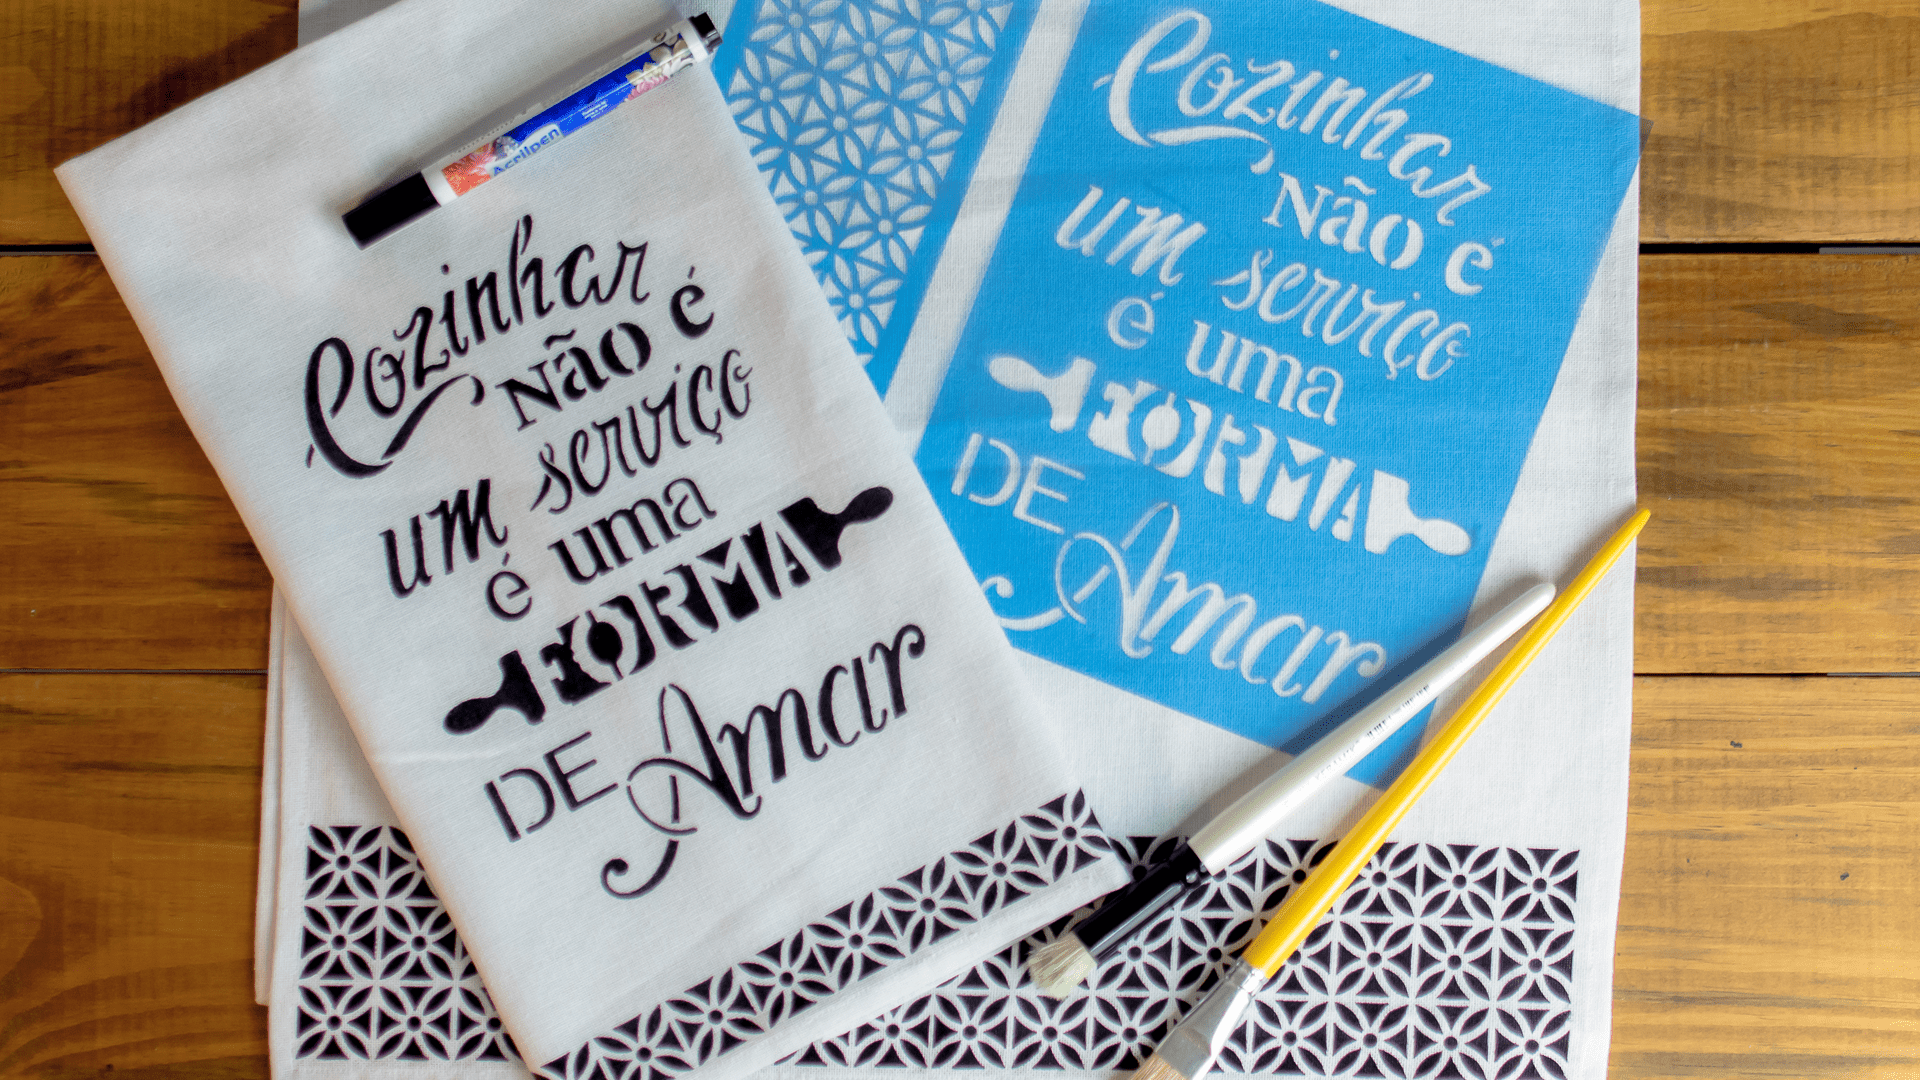 Acrilpen
Cozinhar
não é
um serviço
é uma
FORMA
DE Amar
Cozinhar
não é
um serviço
é uma
FORMA
DE Amar